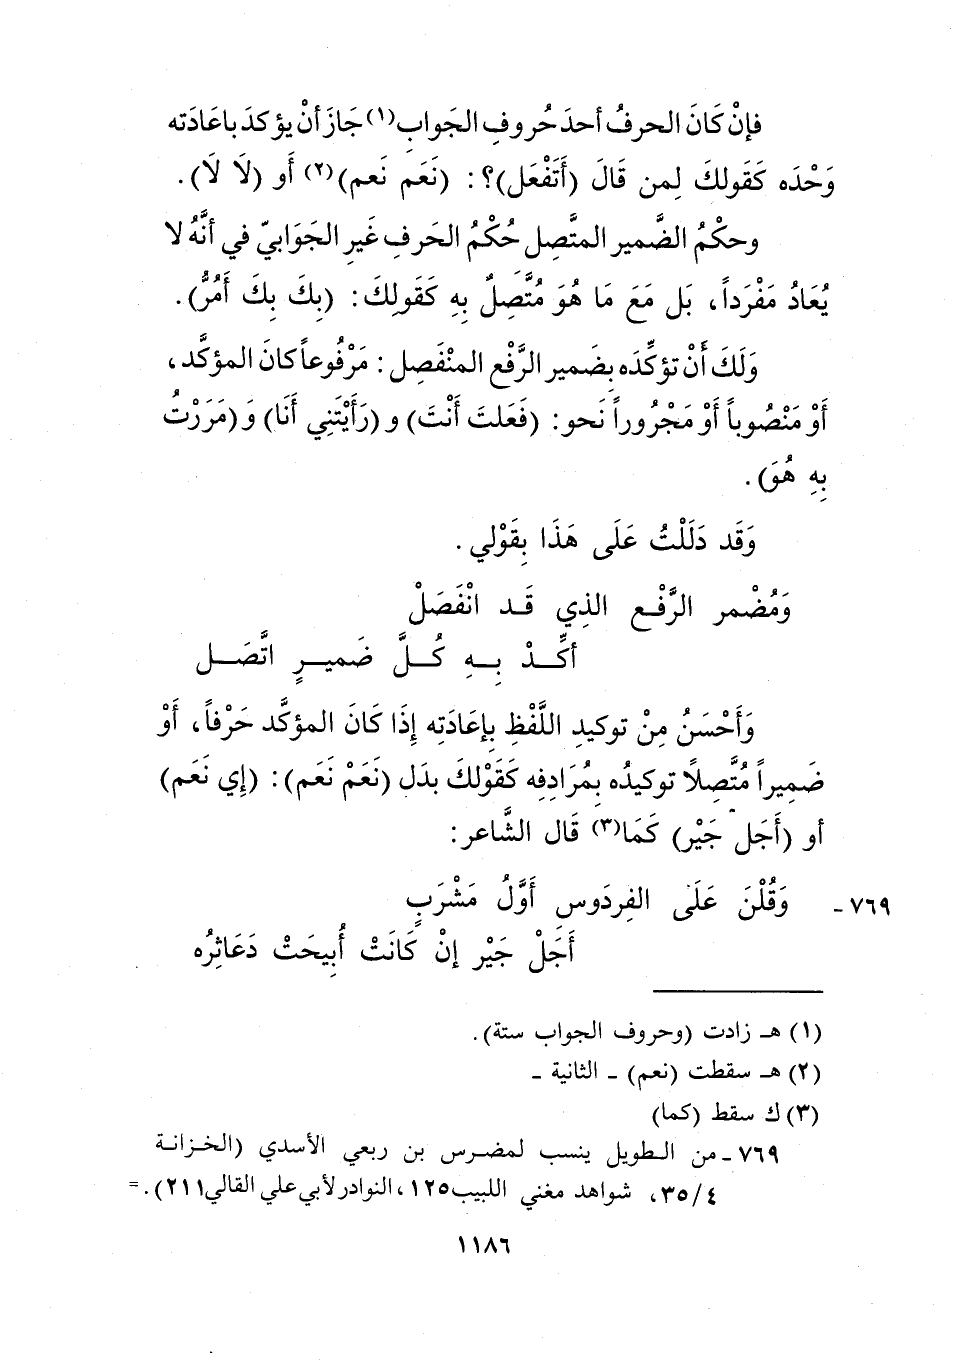 فإنْ كَانَ الحرفُ أحدَ حُروفِ الجَوابِ(١) جَازَ أنْ يؤكدَ باعَادَته
وَحْدَه كَقَولكَ لِمن قَالَ (أَتَفْعَل)؟: (نَعَم نَعم)(٢) أَو (لَا لَا).
وحكْمُ الضَّمير المتَّصِل حُكْمُ الحَرفِ غَيرِ الجَوَابيّ في أنَّهُ لا
يُعَادُ مَفْرَداً، بَل مَعَ مَا هُوَ مُتَّصِلٌ بِهِ كَقَولِكَ: (بِكَ بِكَ أَمُرُّ).
وَلَكَ أَنْ تؤكِّدَه بِضَمير الرَّفْع المنْفَصِل: مَرْفُوعاً كانَ المؤكَّد،
أَوْ مَنْصُوباً أَوْ مَجْرُوراً نَحو: (فَعَلتَ أَنْتَ) و (رَأَيْتَنِي أَنَا) وَ (مَرَرْتُ
بِهِ هُوَ).
وَقَد دَلَلْتُ عَلَى هَذَا بِقَوْلي.
وَمُضْمر الرَّفْعِ الذِي قَد انْفَصَلْ
أكِّدْ بِهِ كُلَّ ضَميرٍ اتَّصَل
وَأَحْسَنُ مِنْ توكيدِ اللَّفْظِ بإعَادَتِه إِذَا كَانَ المؤكَّد حَرْفاً، أَوْ
ضَمِيراً مُتَّصِلًا توكيدُه بمُرَادِفِه كَقَوْلكَ بدَل (نَعَمْ نَعَم): (إِي نَعَم)
أو (أَجَل جَيْرِ) كَمَا(٣) قَال الشَّاعر:
٧٦٩- وَقُلْنَ عَلَى الفِردَوسِ أَوَّلُ مَشْرَبٍ
أَجَلْ جَيْرِ إنْ كَانَتْ أُبِيحَتْ دَعَاثِرُه
(١) هـ زادت (وحروف الجواب ستة).
(٢) هـ سقطت (نعم) - الثانية -
(٣) ك سقط (كما)
٧٦٩- من الطويل ينسب لمضرس بن ربعي الأسدي (الخزانة
٤/ ٣٥، شواهد مغني اللبيب ١٢٥، النوادر لأبي علي القالي ٢١١). =
١١٨٦